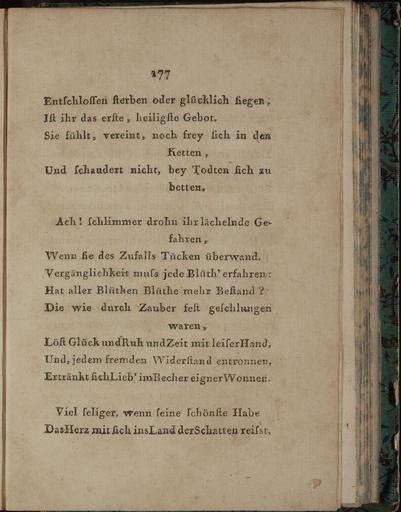 177
Entſchloſſen ſterben oder glücklich ſiegen,
Iſt ihr das erſte, heiligſte Gebot.
Sie fühlt, vereint, noch frey ſich in den
Ketten,
Und ſchaudert nicht, bey Todten ſich zu
betten.
Ach! ſchlimmer drohn ihr lächelnde Ge-
fahren,
Wenn ſie des Zufalls Tücken überwand.
Vergänglichkeit muſs jede Blüth' erfahren:
Hat aller Blüthen Blüthe mehr Beſtand?
Die wie durch Zauber feſt geſchlungen
waren,
Löſt Glück und Ruh und Zeit mit leiſer Hand,
Und, jedem fremden Widerſtand entronnen,
Ertränkt ſich Lieb' im Becher eigner Wonnen.
Viel ſeliger, wenn ſeine ſchönſte Habe
Das Herz mit ſich ins Land der Schatten reiſst,